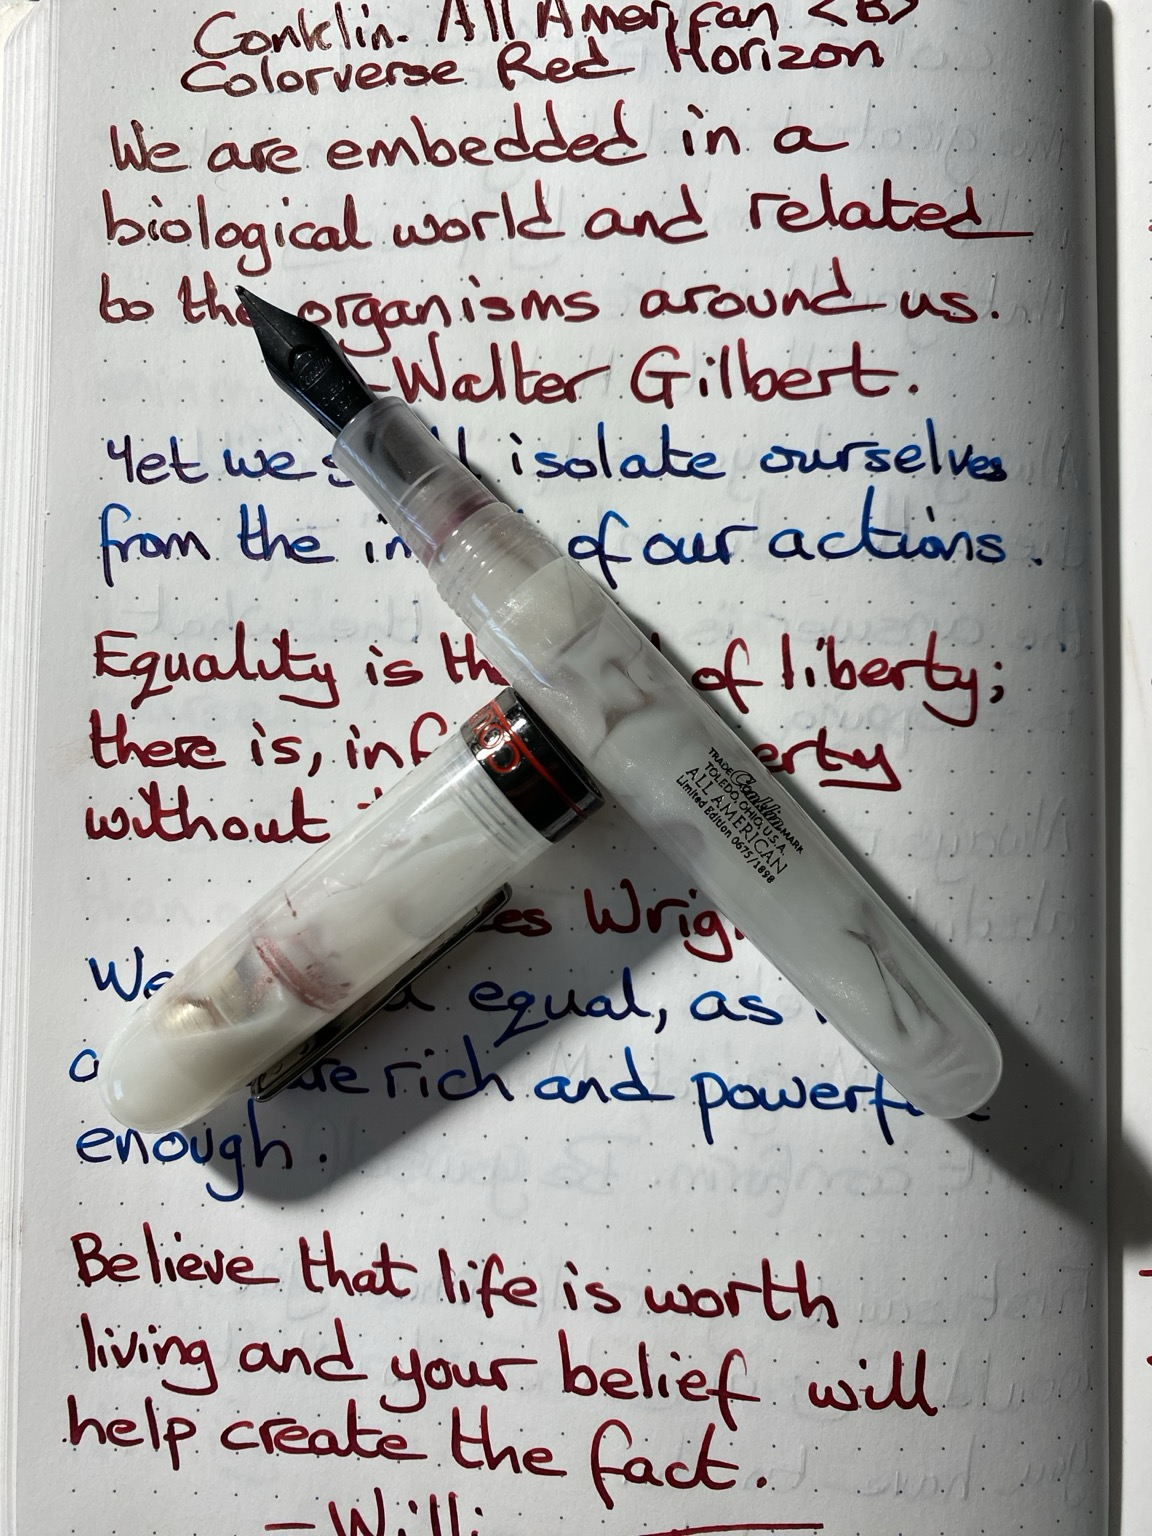 Conklin. All American <B>
Colorverse Red Horizon
We are embedded in a
biological world and related
to the organisms around us.
-Walter Gilbert.
Yet we isolate ourselves
from the of our actions.
Equality is of liberty;
there is, in
without
Wright
We equal, as
are rich and powerful
enough.
Believe that life is worth
living and your belief will
help create the fact.
TRADE Conklin MARK
TOLEDO, OHIO, U.S.A.
ALL AMERICAN
Limited Edition 0675/1898